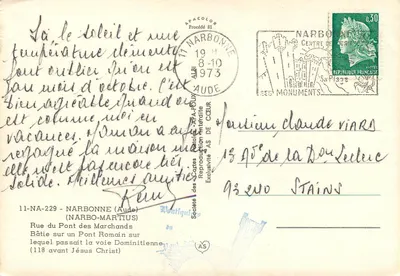 SPADECOR
Procédé H
11 NARBONNE
19 H
8-10
1973
AUDE
NARBONNE
CENTRE DE
SA PLAGE
SES MONUMENTS
0,30
REPUBLIQUE FRANÇAISE
Ici le soleil et une
température clémente
font oublier qu'on est
au mois d'octobre. C'est
bien agréable quand on
est comme moi en
vacances. Maman a
regagné la maison mais
elle n'est pas encore très
solide. Meilleures amitiés
Monsieur Claude VIARD
13 Av de la Don Leclerc
93200 STAINS
11-NA-229 - NARBONNE (Aude)
(NARBO-MARTIUS)
Rue du Pont des Marchands
Bâtie sur un Pont Romain sur
lequel passait la voie Domitienne
(118 avant Jésus Christ)
Reproduction interdite
Exclusivité AS DE CŒUR
AS